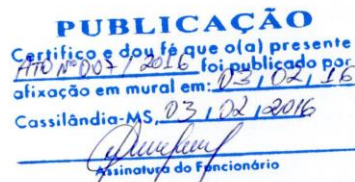 PUBLICAÇÃO
Certifico e dou fé que o(a) presente
ATO Nº 007 / 2016 foi publicado por
afixação em mural em: 03 / 02 / 16
Cassilândia-MS, 03 / 02 / 2016
Assinatura do Funcionário